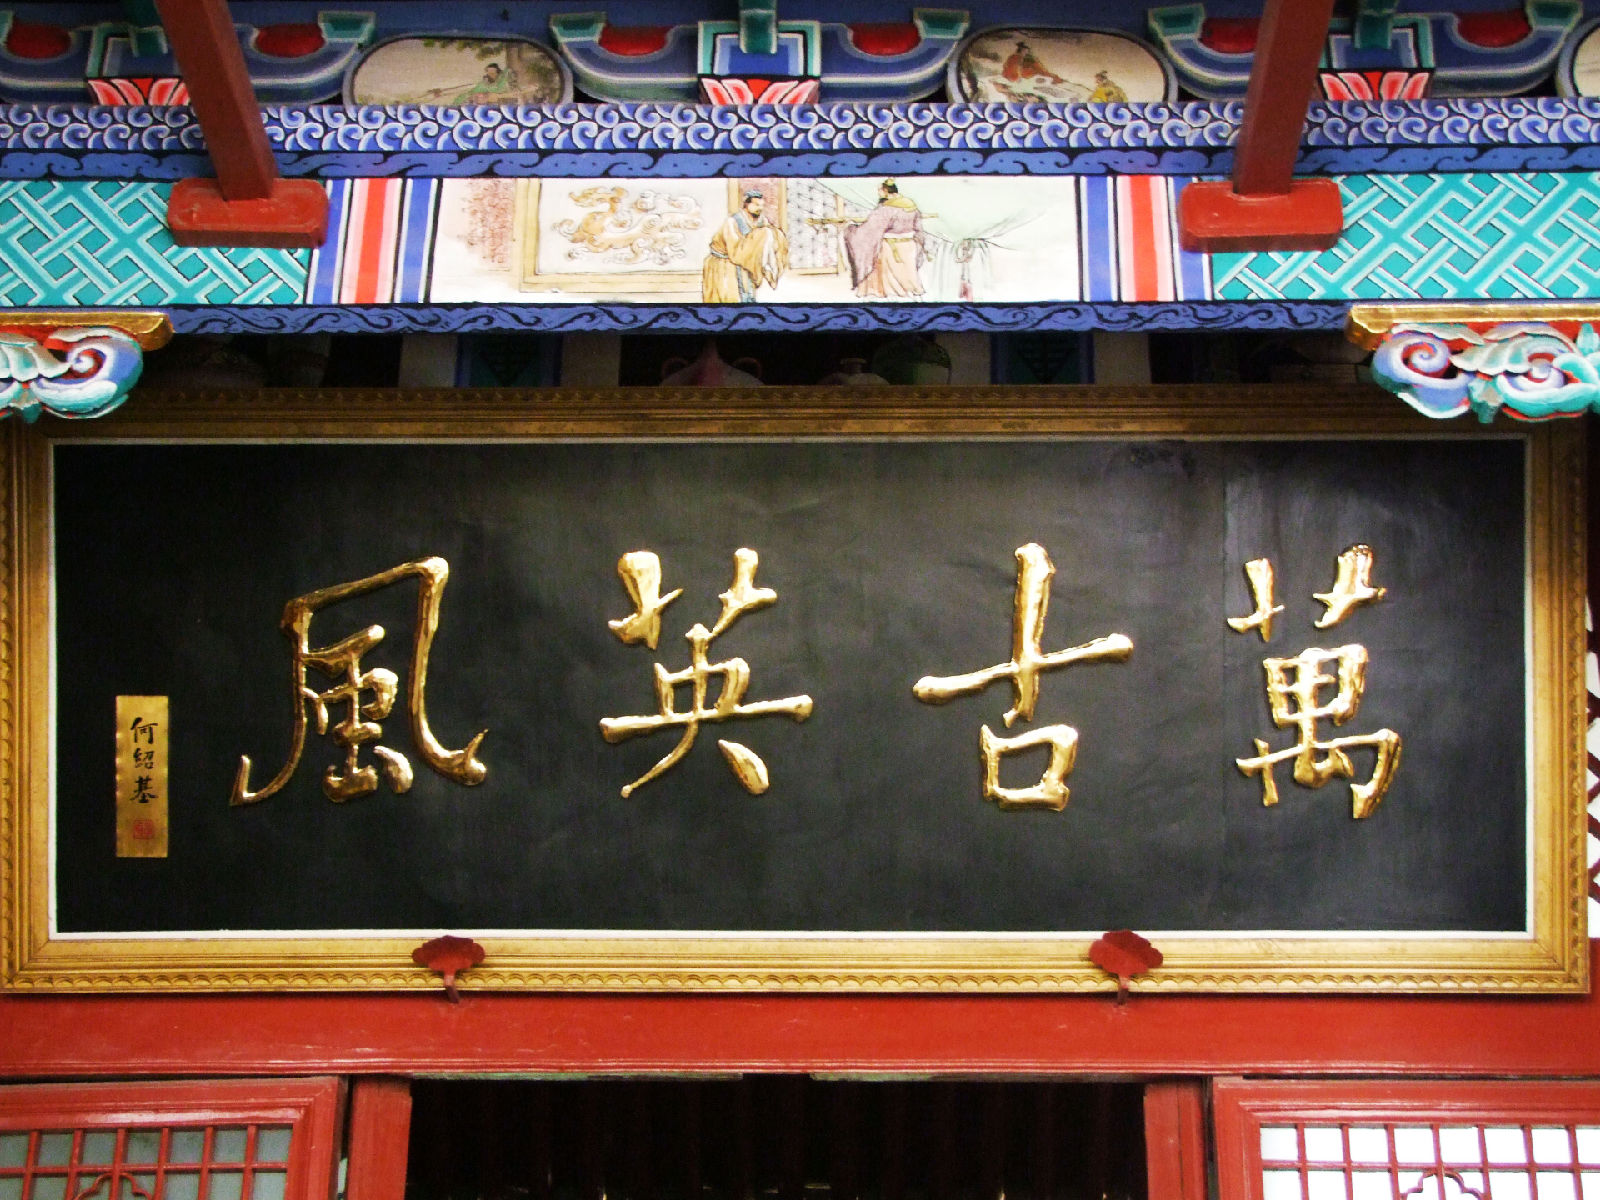 萬古英風
何紹基